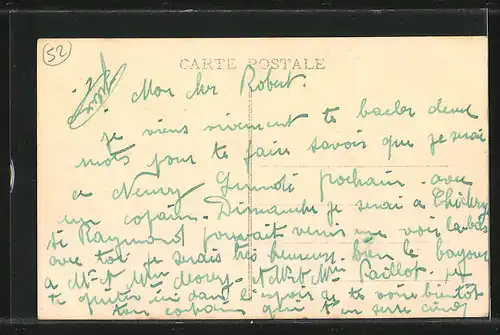 52
CARTE POSTALE
Mon cher Robert.
je viens vivement te bacler deux
mots pour te faire savois que je serai
a Neury Lundi prochain avec
un copain. Dimanche je serai a Thiery
si Raymond pouvait venir me voir la-bas
avec toi je serais très heureux. bien le bonjour
a Mr et Mme et Mr et Mme Paillot. je
te quitte ici dans l'espoir de te voire bientot
ton copain qui t'en serre cinq